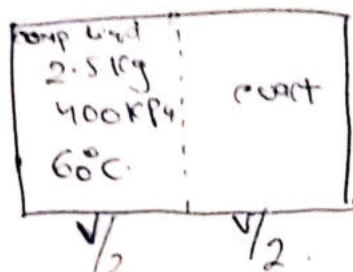 comp liquid
2.5 Kg
400 KPa
60°C.
evact
V/2
V/2.